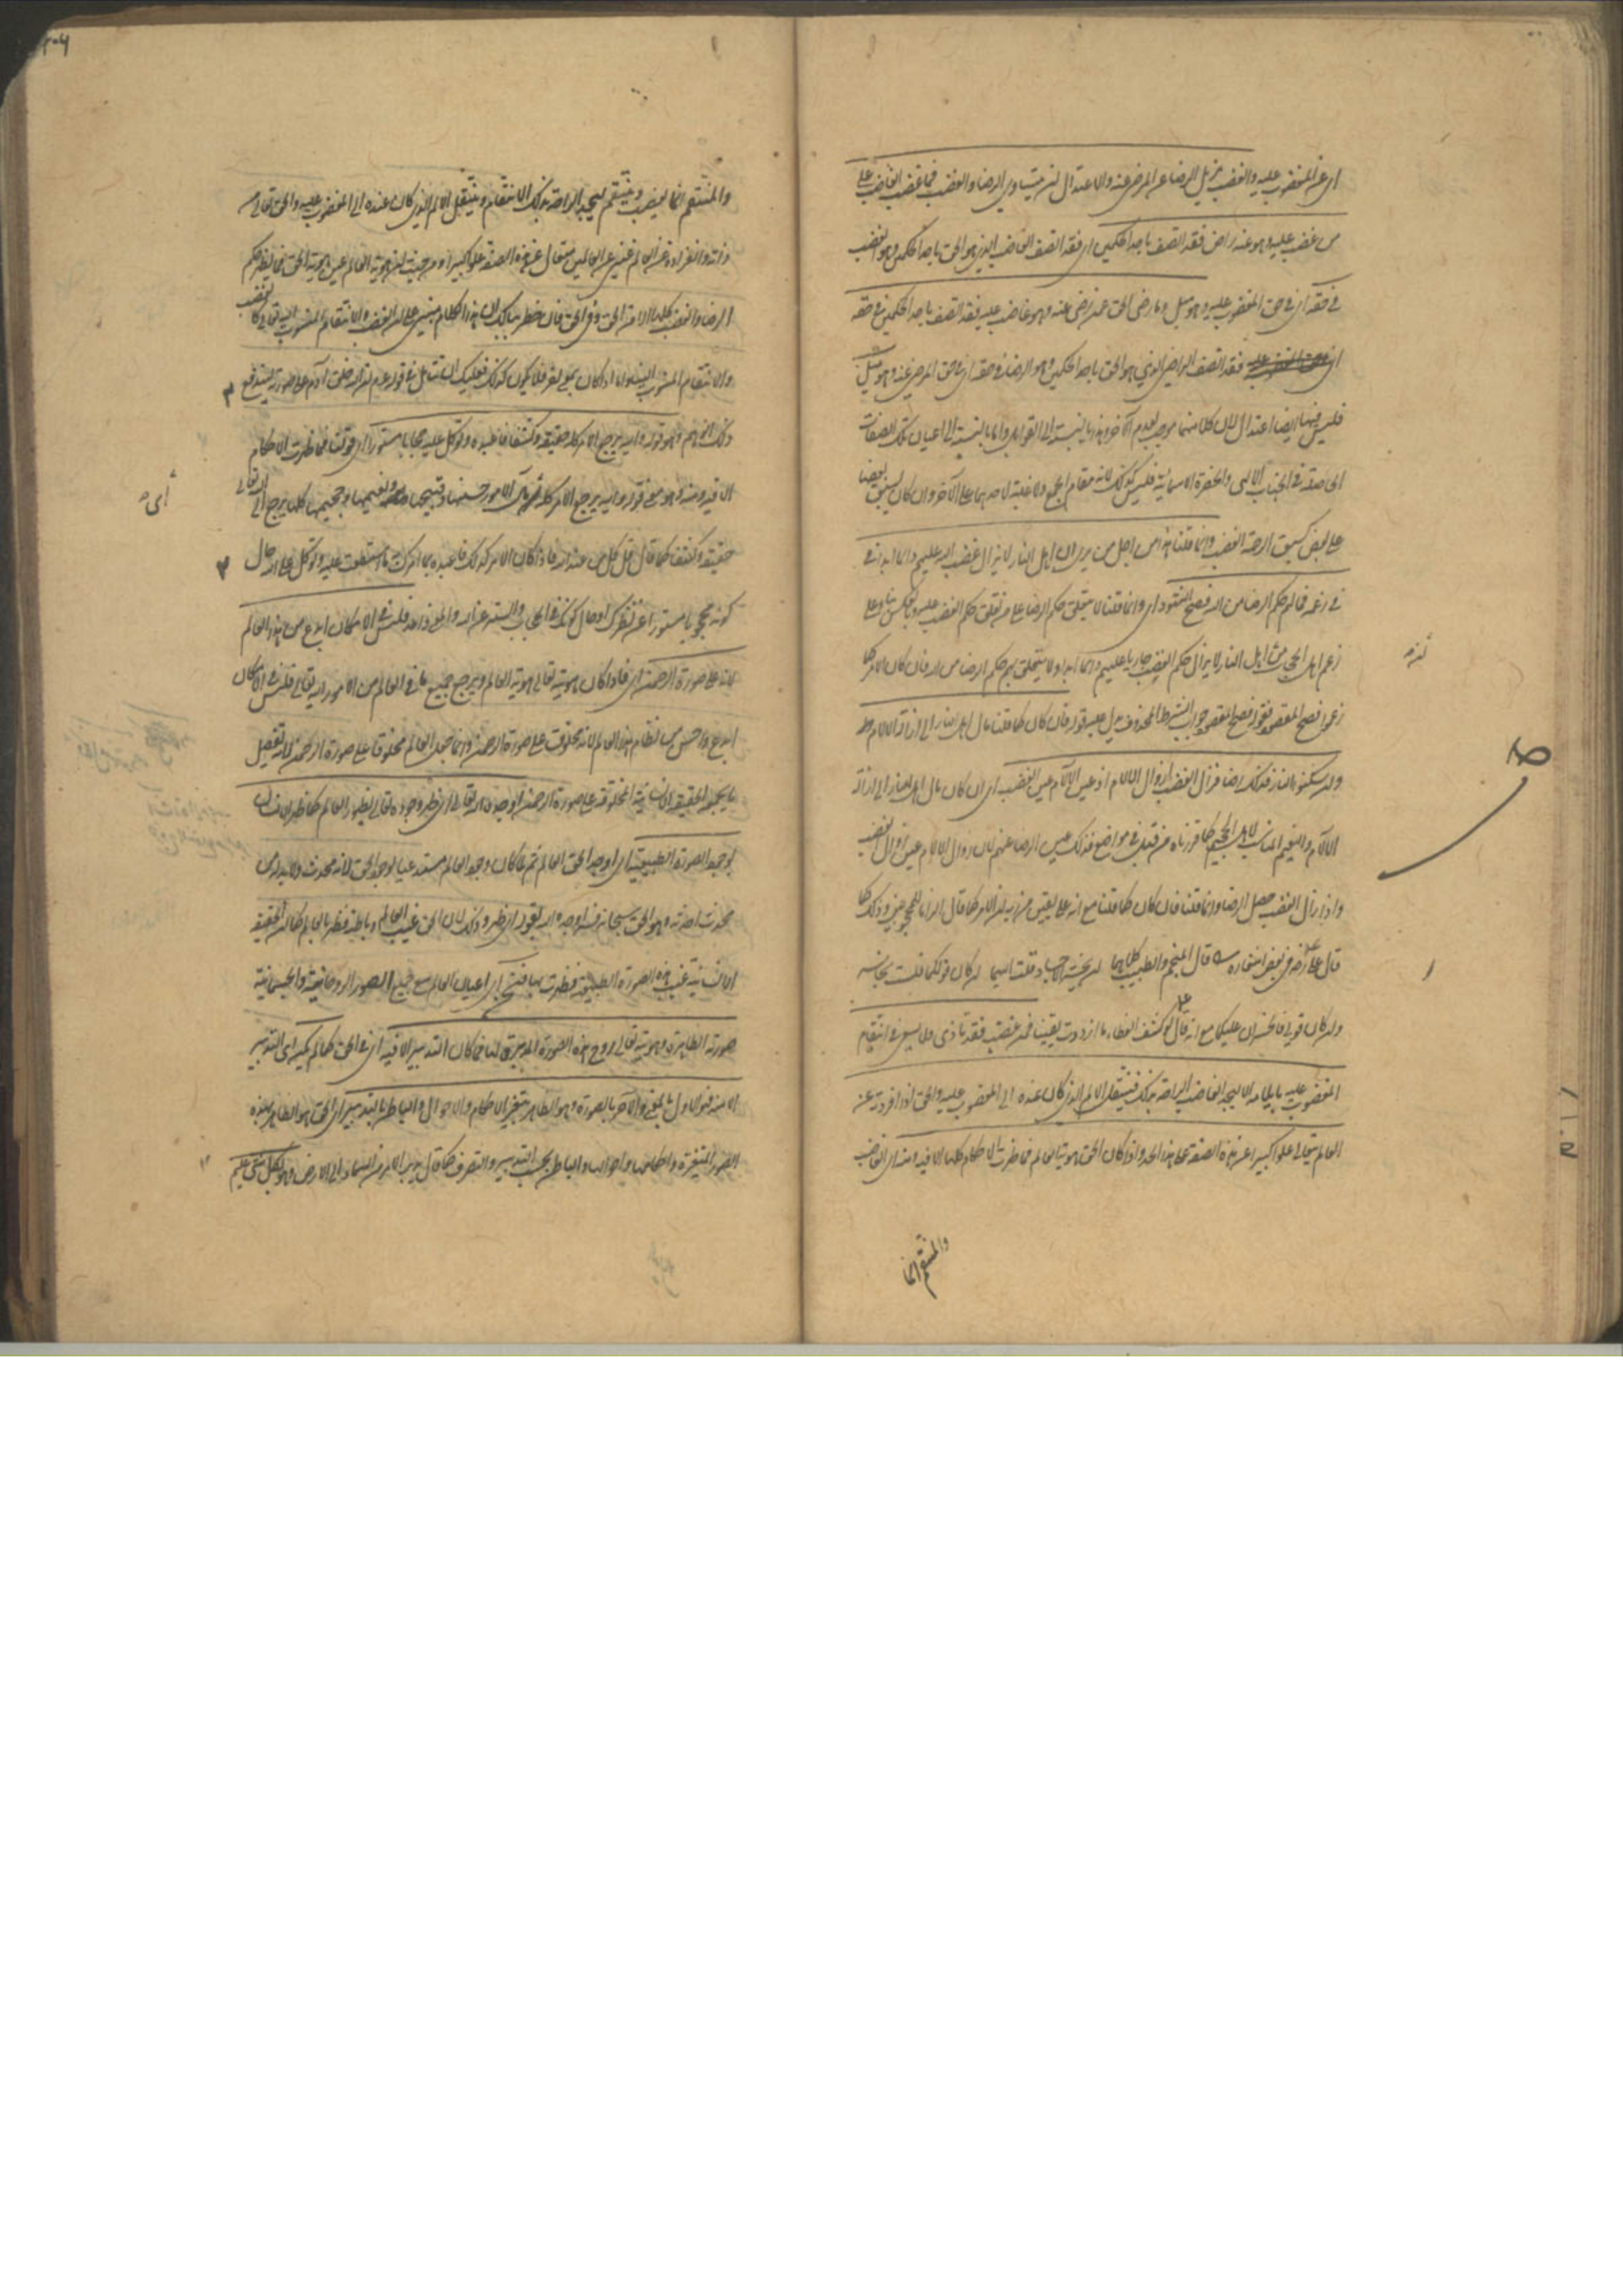 اى عن المغضوب عليه والغضب يزيل الرضا عن المرضى عنه والاعتدال ان يتساوى الرضا والغضب فما غضب الغاضب على
من غضب عليه وهو عنه راض فقد اتصف باحد الحكمين اى فقد اتصف الغاضب الذى هو الحق باحد الحكمين وهو الغضب
فى حقه اى فى حق المغضوب عليه وهو ميل وما رضى الحق عمن رضى عنه وهو غاضب عليه فقد اتصف باحد الحكمين فى حقه
اى فقد اتصف الراضى الذى هو الحق باحد الحكمين وهو الرضا فى حقه اى فى حق المرضى عنه وهو ميل
فليس فيهما ايضا اعتدال لان كلا منهما موجب لعدم الآخر وهذا بالنسبة الى القوابل واما بالنسبة الى اعيان تلك الصفات
الحاصلة فى الجناب الالهى والحضرة الاسمائية فليس كذلك لانه مقام الجمع ولا غلبة لاحدهما على الآخر وان كان يسبق بعضها
على بعض كسبق الرحمة الغضب وانما قلنا هذا من اجل من يرى ان اهل النار لا يزال غضب الله عليهم دائما ابدا فى
فى زعمه فما لهم حكم الرضا من الله فصح المقصود اى وانما قلنا لا يتعلق حكم الرضا على من تعلق حكم الغضب عليه وبالعكس بناء على
زعم اهل الحجاب من اهل النار لا يزال حكم الغضب جاريا عليهم دائما ابدا ولا يتعلق بهم حكم الرضا من الله فان كان الامر كما
زعموا فصح المقصود فقوله فصح المقصود جواب الشرط المحذوف يدل عليه قوله فان كان كما قلنا مآل اهل النار الى ازالة الآلام
وان سكنوا النار فذلك رضا فزال الغضب لزوال الآلام اذ عين الآلام عين الغضب اى ان كان مآل اهل النار الى ازالة
الآلام والنعيم المناسب لاهل الجحيم كما قررناه من قبل فى مواضع فذلك عين الرضا عنهم لان زوال الآلام عين زوال الغضب
واذا زال الغضب حصل الرضا وانما قلنا فان كان كما قلنا مع انه على يقين من ان الامر كما قال الزاما للمحجوبين وذلك كما
قال على رضه فى بعض اشعاره قال المنجم والطبيب كلاهما لن يحشر الاجساد قلت اليكما ان كان قولكما فلست بخاسر
وان كان قولى فالخسران عليكما مع انه قال لو كشف الغطاء ما ازددت يقينا فمن غضب فقد تأذى فلا يسعى فى انتقام
المغضوب عليه بايلامه الا ليجد الغاضب الراحة بذلك فينتقل الالم الذى كان عنده الى المغضوب عليه والحق اذا افردته عن
العالم يتعالى علوا كبيرا عن هذه الصفة على هذا الحد واذا كان الحق هوية العالم فما ظهرت الاحكام كلها الا فيه ومنه اى الغاضب
والمنتقم انما
والمنتقم انما يغضب وينتقم ليجد الراحة بذلك الانتقام وينتقل الالم الذى كان عنده الى المغضوب عليه والحق تعالى من
ذاته وانفراده عن العالم غنى عن العالمين متعال عن هذه الصفة علوا كبيرا ومن حيث ان هوية العالم عين هوية الحق فما يظهر حكم
الرضا والغضب كلها الا من الحق وفى الحق فان خطر ببالك ان هذا الكلام مبنى على ان الغضب والانتقام المنسوب اليه تعالى كالغضب
والانتقام المنسوب الينا ولا اذ كان بمعنى آخر فلا يكون كذلك فعليك ان تتأمل فى قوله عم ان الله خلق آدم على صورته ليندفع
ذلك الوهم وهو قوله واليه يرجع الامر كله حقيقة وكشفا فاعبده وتوكل عليه حجابا وسترا اى قولنا فما ظهرت الاحكام
الا فيه ومنه وهو معنى قوله واليه يرجع الامر كله اى الامور حسنها وقبيحها ونعيمها وجحيمها كلها يرجع الى الله تعالى
حقيقة وكشفا كما قال قل كل من عند الله فاذا كان الامر كذلك فاعبده بما امرك ما استطعت عليه وتوكل على الله حال
كونه محجوبا مستورا عن نظرك او حال كونك فى الحجاب والستر عن الله والحق واحد فليس فى الامكان ابدع من هذا العالم
لانه على صورة الرحمن اى فاذا كان هوية تعالى هوية العالم ويرجع جميع ما فى العالم من الامور اليه تعالى فليس فى الامكان
ابدع واحسن من نظام هذا العالم لانه مخلوق على صورة الرحمن وانما جعل العالم مخلوقا على صورة الرحمن لانه تفصيل
ما يجمعه الحقيقة الانسانية المخلوقة على صورة الرحمن اوجده الله تعالى اى ظهر وجوده تعالى بظهور العالم كما ظهر الانسان
بوجود الصورة الطبيعية اى اوجد الحق العالم ثم لما كان وجود العالم مستدعيا لوجود الحق لانه محدث ولا بد له من
محدث احدثه وهو الحق سبحانه فسر اوجده الله بقوله اى ظهر وذلك لان الحق غيب العالم وباطنه فظهر بالعالم كما ان الحقيقة
الانسانية غيب هذه الصورة الطبيعية فظهرت بها فنحن اى اعيان العالم مع جميع الصور الروحانية والجسمانية
صورته الظاهرة وهويته تعالى روح هذه الصورة المدبرة لها فما كان التدبير الا فيه اى فى الحق كما لم يكن اى التدبير
الا منه فهو الاول بالمعنى والآخر بالصورة وهو الظاهر بتغير الاحكام والاحوال والباطن بالتدبير اى الحق هو الظاهر بهذه
الصور المتغيرة واحكامها واحوالها والباطن بحسب التدبير والتصرف كما قال يدبر الامر من السماء الى الارض وهو بكل شئ عليم